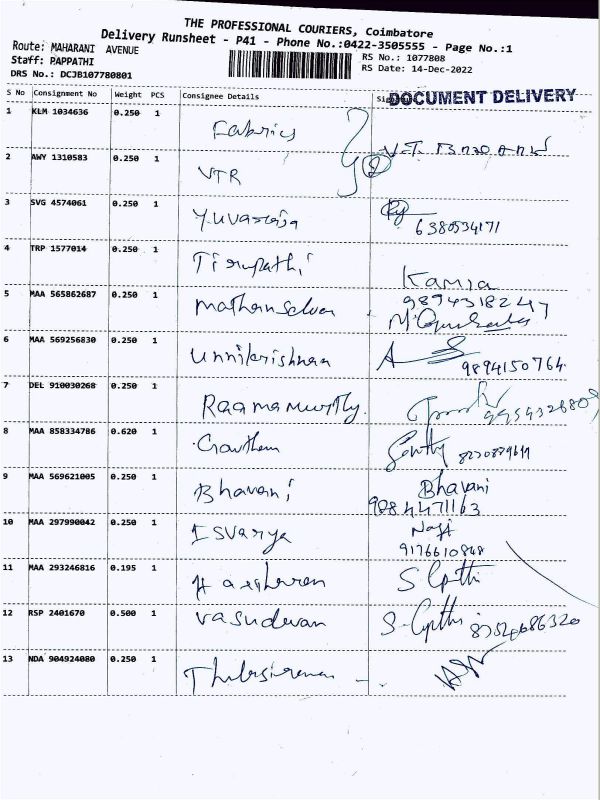 THE PROFESSIONAL COURIERS, Coimbatore
Delivery Runsheet - P41 - Phone No.:0422-3505555 - Page No.:1
Route: MAHARANI AVENUE
Staff: PAPPATHI
DRS No.: DCJB107780801
RS No.: 1077808
RS Date: 14-Dec-2022
S No Consignment No Weight PCS Consignee Details
DOCUMENT DELIVERY
1 KLM 1034636 0.250 1 Fabrics
2 AWY 1310583 0.250 1 VTR
3 SVG 4574061 0.250 1 Yuvaraja
6380534171
4 TRP 1577014 0.250 1 Tirupathi
5 MAA 565862687 0.250 1
9894318247
6 MAA 569256830 0.250 1 Unnikrishnan
9894150764
7 DEL 910030268 0.250 1 Raamamurthy
8 MAA 858334786 0.620 1 Gowtham
9 MAA 569621005 0.250 1 Bhavani Bhavani
10 MAA 297990042 0.250 1 Isvarya
9176610848
11 MAA 293246816 0.195 1
12 RSP 2401670 0.500 1 Vasudevan
13 NDA 904924080 0.250 1